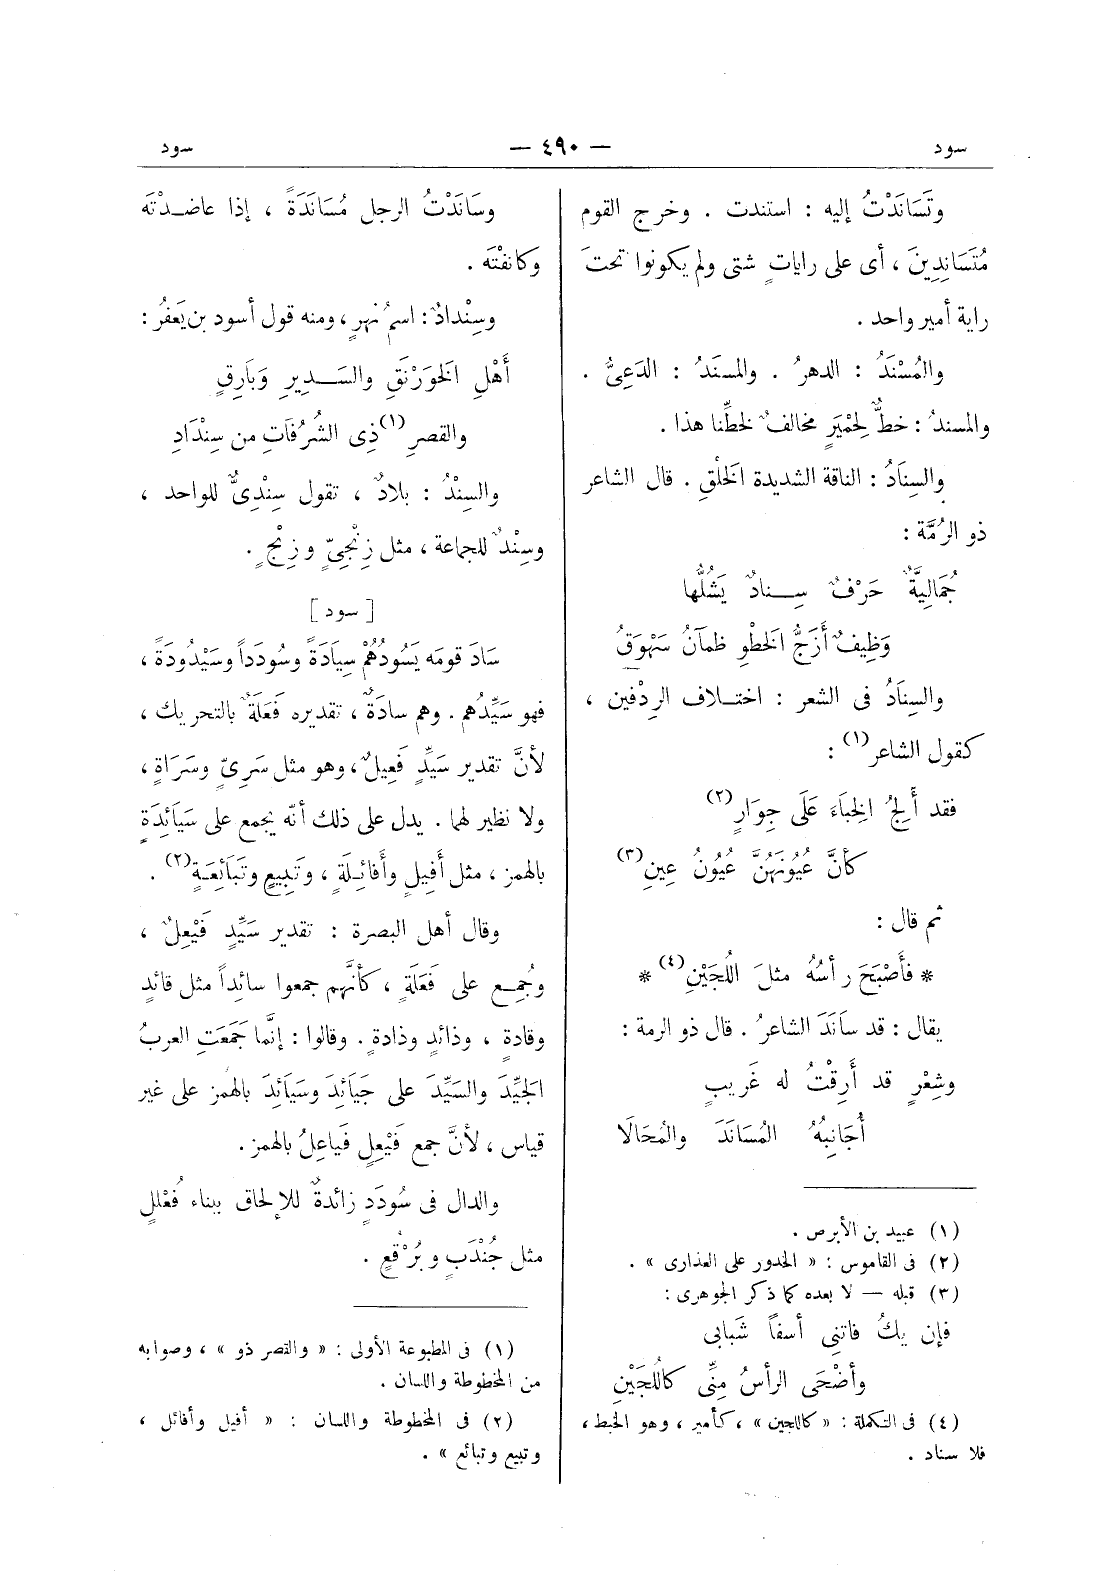 سود — ٤٩٠ — سود
وتَسَانَدْتُ إليه : استندت . وخرج القوم
مُتَسَانِدِينَ ، أى على راياتٍ شتى ولم يكونوا تحتَ
راية أمير واحد .
والمُسْنَدُ : الدهرُ . والمسنَدُ : الدَعِىُّ .
والمسندُ : خطٌّ لِحِمْيَرٍ مخالفٌ لخطِّنا هذا .
والسِنَادُ : الناقة الشديدة الخَلْقِ . قال الشاعر
ذو الرُمَّة :
جُمَالِيَّةٌ حَرْفٌ سِنادٌ يَشُلُّها
وَظِيفٌ أَزَجُّ الخَطْوِ ظمآنُ سَهْوَقُ
والسِنَادُ فى الشعر : اختلاف الرِدْفين ،
كقول الشاعر(١) :
فقد أَلِجُ الخِبَاءَ عَلَى جِوَارٍ(٢)
كأنَّ عُيُونَهُنَّ عُيُونُ عِينِ(٣)
ثم قال :
* فأَصْبَحَ رأسُهُ مثلَ اللُجَيْنِ(٤) *
يقال : قد سَانَدَ الشاعرُ . قال ذو الرمة :
وشِعْرٍ قد أَرِقْتُ له غَرِيبٍ
أُجَانِبُهُ المُسَانَدَ والمُحَالَا
(١) عبيد بن الأبرص .
(٢) فى القاموس : « الخدور على العذارى » .
(٣) قبله — لا بعده كما ذكر الجوهرى :
فإن يكُ فاتنِى أسفاً شَبابى
وأضْحَى الرأسُ مِنِّى كاللُجَيْنِ
(٤) فى التكملة : « كاللجين » ، كأمير ، وهو الخبط ،
فلا سناد .
وسَانَدْتُ الرجل مُسَانَدَةً ، إذا عاضدْتَه
وكانفْتَه .
وسِنْدادُ : اسم نهرٍ ، ومنه قول أسود بن يَعفُر :
أَهْلِ الخَوَرْنَقِ والسَدِيرِ وَبَارِقٍ
والقصرِ(١) ذِى الشُرُفَاتِ من سِنْدَادِ
والسِنْدُ : بلادٌ ، تقول سِنْدِىٌّ للواحد ،
وسِنْدٌ للجماعة ، مثل زِنْجِىٍّ وزِنْجٍ .
[ سود ]
سَادَ قومَه يَسُودُهُمْ سِيَادَةً وسُودَداً وسَيْدُودَةً ،
فهو سَيِّدُهم . وهم سادَةٌ ، تقديره فَعَلَةٌ بالتحريك ،
لأنَّ تقدير سَيِّدٍ فَعِيلٌ ، وهو مثل سَرِىٍّ وسَرَاةٍ ،
ولا نظير لهما . يدل على ذلك أنّه يجمع على سَيَائِدَةٍ
بالهمز ، مثل أَفِيلٍ وأَفائِلَةٍ ، وتَبِيعٍ وتَبَائِعَةٍ(٢) .
وقال أهل البصرة : تقدير سَيِّدٍ فَيْعِلٌ ،
وجُمِع على فَعَلَةٍ ، كأنَّهم جمعوا سائداً مثل قائدٍ
وقادةٍ ، وذائدٍ وذادةٍ . وقالوا : إنَّما جَمَعَتِ العربُ
الجَيِّدَ والسَيِّدَ على جَيَائِدَ وسَيَائِدَ بالهمز على غير
قياس ، لأنَّ جمع فَيْعِلٍ فَيَاعِلُ بالهمز .
والدال فى سُودَدٍ زائدةٌ للإلحاق ببناء فُعْلَلٍ
مثل جُنْدَبٍ وبُرْقَعٍ .
(١) فى المطبوعة الأولى : « والقصر ذو » ، وصوابه
من المخطوطة واللسان .
(٢) فى المخطوطة واللسان : « أفيل وأفائل ،
وتبيع وتبائع » .